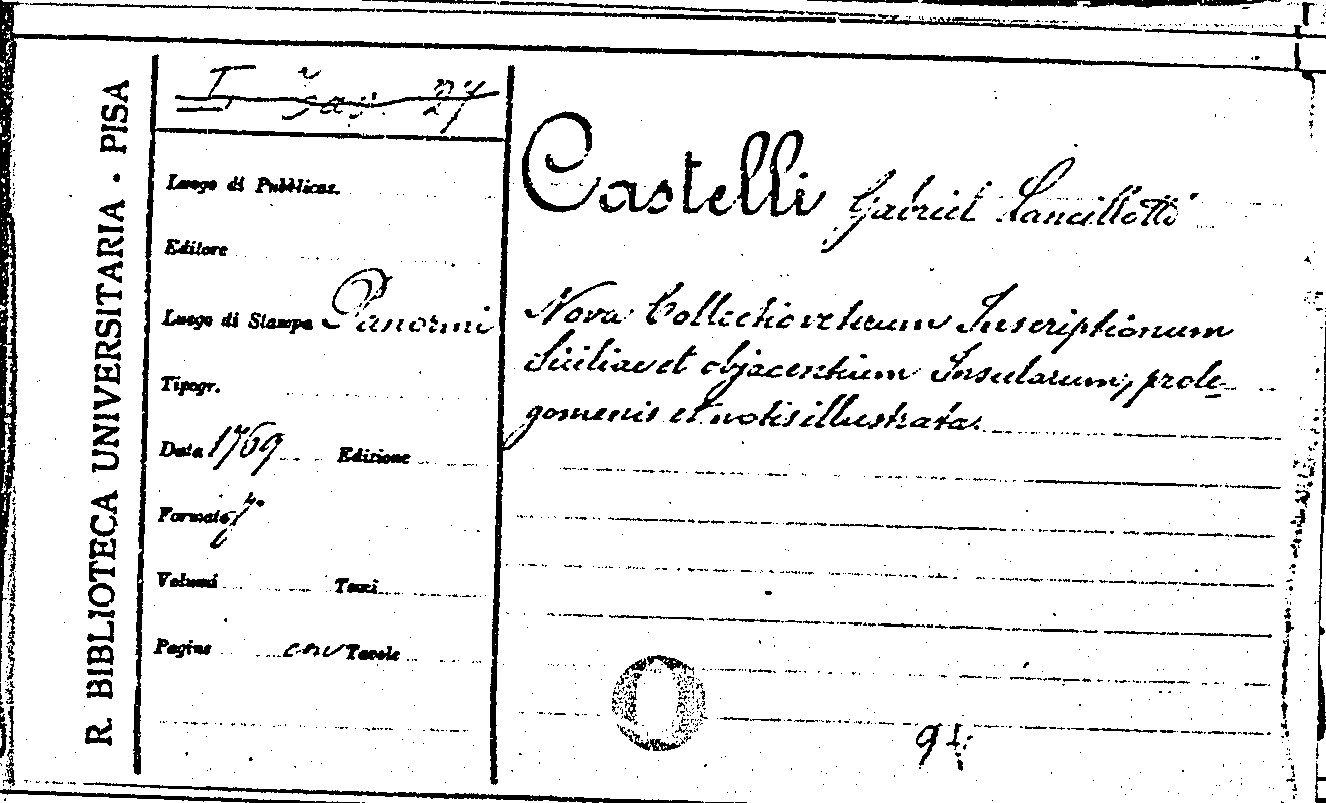 R. BIBLIOTECA UNIVERSITARIA · PISA
27
Luogo di Pubblicaz.
Editore
Luogo di Stampa Panormi
Tipogr.
Data 1769 Edizione
Formato f.º
Volumi Tomi
Pagine con Tavole
Castelli Gabriel Lancillotti
Nova Collectio veterum Inscriptionum
Siciliae et objacentium Insularum, prole-
gomenis et notis illustrata.